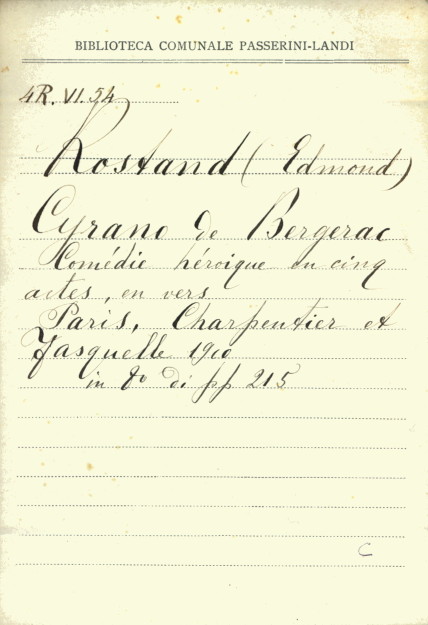 BIBLIOTECA COMUNALE PASSERINI-LANDI
4R. VI. 54
Rostand (Edmond)
Cyrano de Bergerac
Comédie héroique en cinq
actes, en vers
Paris, Charpentier et
Fasquelle 1910
in 8º di pp 215
C